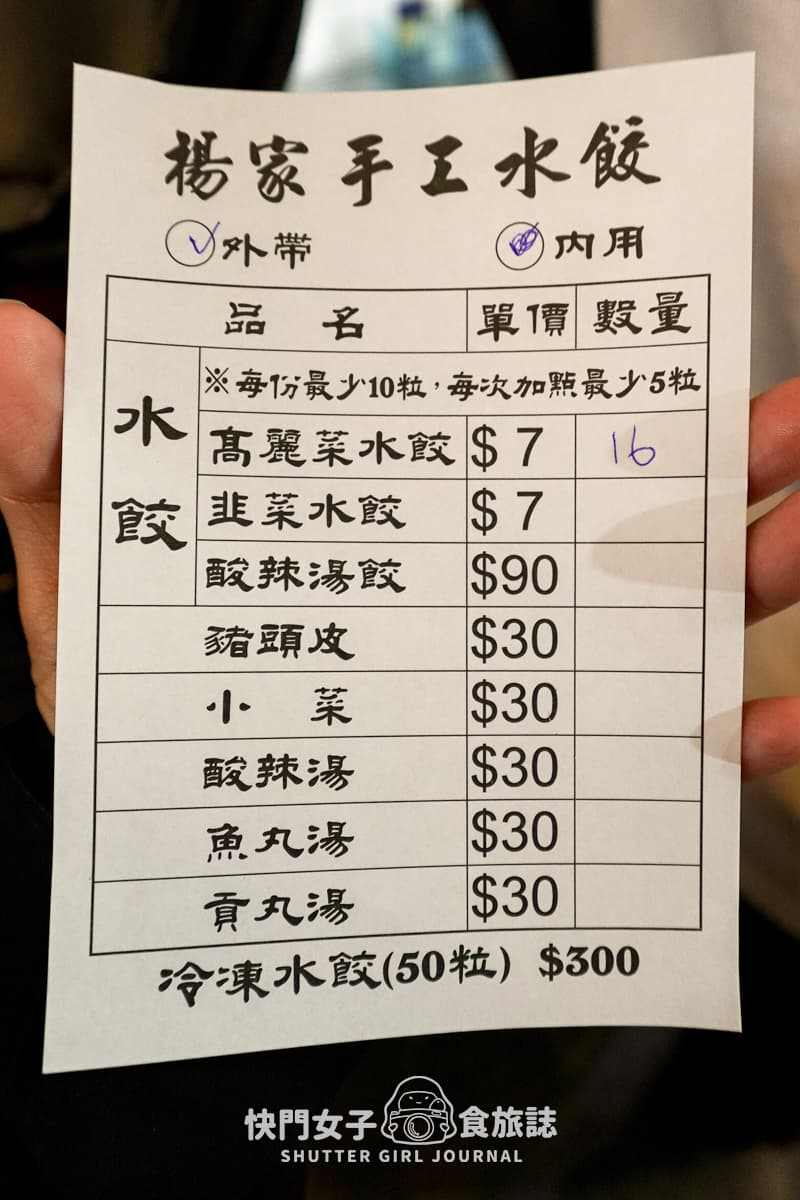 楊家手工水餃
✓外帶 內用
品名 單價 數量
水餃
※每份最少10粒，每次加點最少5粒
高麗菜水餃 $ 7 16
韭菜水餃 $ 7
酸辣湯餃 $90
豬頭皮 $30
小菜 $30
酸辣湯 $30
魚丸湯 $30
貢丸湯 $30
冷凍水餃(50粒) $300
快門女子食旅誌
SHUTTER GIRL JOURNAL